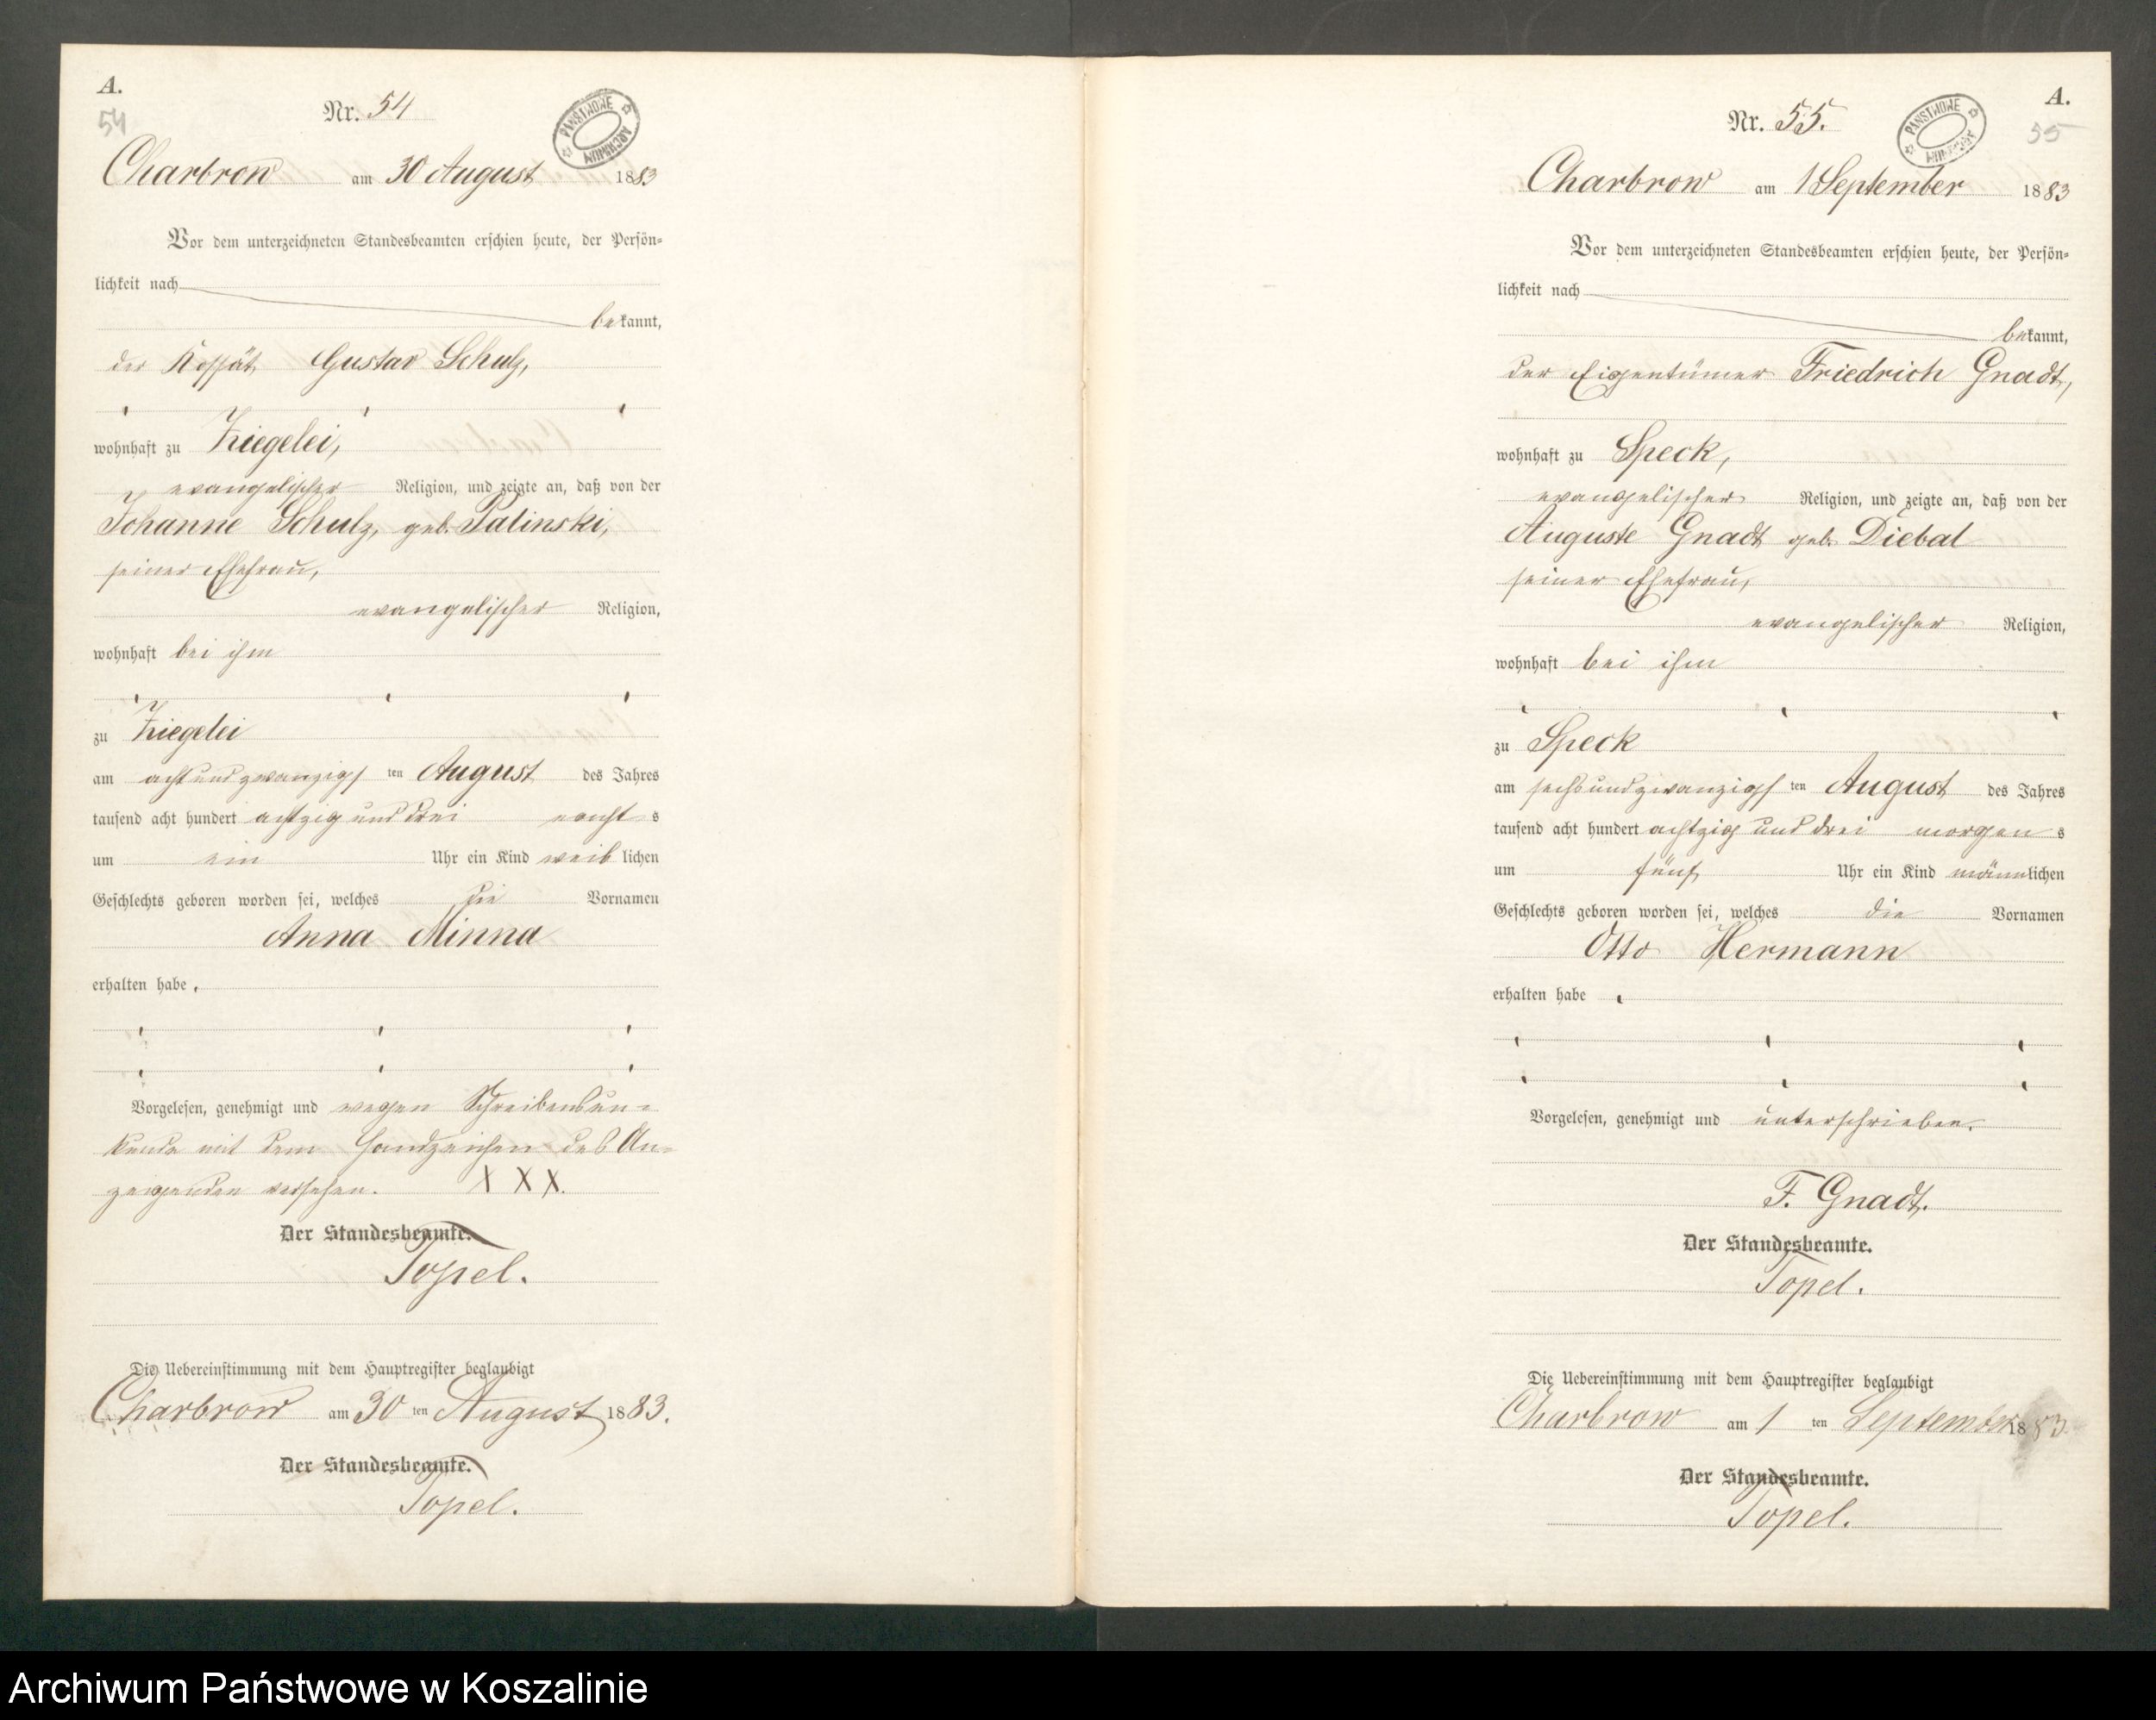 A.
54
Nr. 54
PAŃSTWOWE ARCHIWUM
Charbrow am 30 August 1883
Vor dem unterzeichneten Standesbeamten erschien heute, der Persön-
lichkeit nach
bekannt,
der Kossät Gustav Schulz,
wohnhaft zu Ziegelei,
evangelischer Religion, und zeigte an, daß von der
Johanne Schulz, geb. Palinski,
seiner Ehefrau,
evangelischer Religion,
wohnhaft bei ihm
zu Ziegelei
am achtundzwanzigsten August des Jahres
tausend acht hundert achtzig und drei nachts
um ein Uhr ein Kind weiblichen
Geschlechts geboren worden sei, welches die Vornamen
Anna Minna
erhalten habe.
Vorgelesen, genehmigt und wegen Schreibensun-
kunde mit dem Handzeichen des An-
zeigenden versehen. X X X.
Der Standesbeamte.
Topel.
Die Uebereinstimmung mit dem Hauptregister beglaubigt
Charbrow am 30 ten August 1883.
Der Standesbeamte.
Topel.
A.
55
Nr. 55.
PAŃSTWOWE ARCHIWUM
Charbrow am 1 September 1883
Vor dem unterzeichneten Standesbeamten erschien heute, der Persön-
lichkeit nach
bekannt,
der Eigentümer Friedrich Gnadt,
wohnhaft zu Speck,
evangelischer Religion, und zeigte an, daß von der
Auguste Gnadt geb. Diebal
seiner Ehefrau,
evangelischer Religion,
wohnhaft bei ihm
zu Speck
am sechsundzwanzigsten August des Jahres
tausend acht hundert achtzig und drei morgens
um fünf Uhr ein Kind männlichen
Geschlechts geboren worden sei, welches die Vornamen
Otto Hermann
erhalten habe
Vorgelesen, genehmigt und unterschrieben.
F. Gnadt.
Der Standesbeamte.
Topel.
Die Uebereinstimmung mit dem Hauptregister beglaubigt
Charbrow am 1 ten September 1883.
Der Standesbeamte.
Topel.
Archiwum Państwowe w Koszalinie